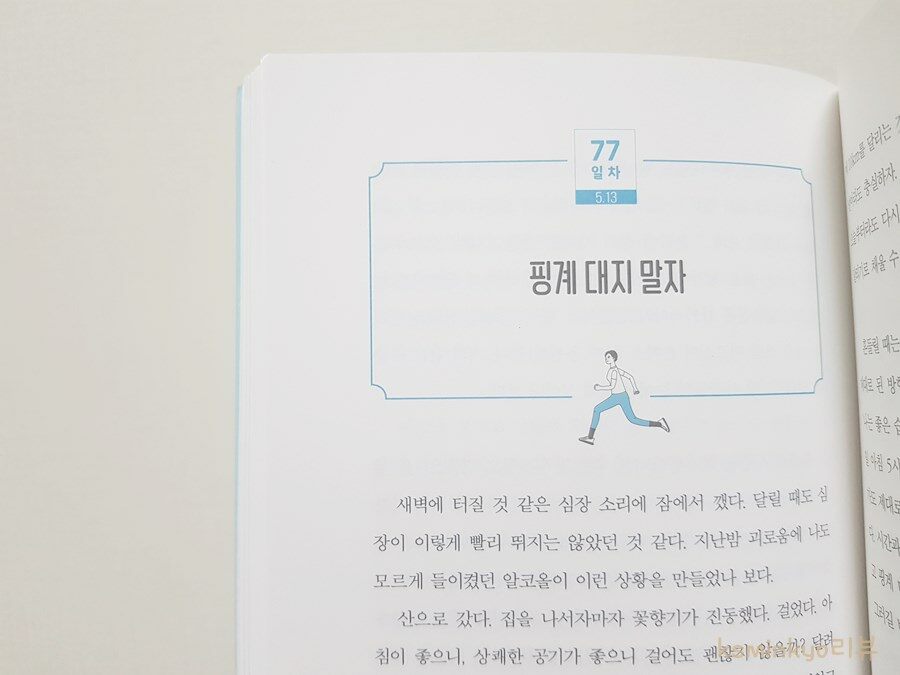 77
일차
5.13
핑계 대지 말자
새벽에 터질 것 같은 심장 소리에 잠에서 깼다. 달릴 때도 심
장이 이렇게 빨리 뛰지는 않았던 것 같다. 지난밤 괴로움에 나도
모르게 들이켰던 알코올이 이런 상황을 만들었나 보다.
산으로 갔다. 집을 나서자마자 꽃향기가 진동했다. 걸었다. 아
침이 좋으니, 상쾌한 공기가 좋으니 걸어도 괜찮지 않을까? 달려
를 달리는
충실하자.
다시
채울 수
흔들릴 때는
된 방
좋은 습
아침 5시
제대로
시간과
고 핑계
그러길
리뷰